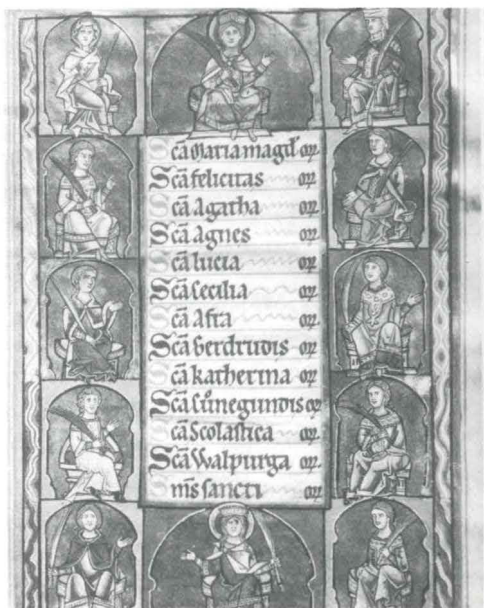 Scā Maria magd̄ or.
Scā felicitas or.
Scā Agatha or.
Scā Agnes or.
Scā lucia or.
Scā Cecilia or.
Scā Afra or.
Scā Gerdrudis or.
Scā katherina or.
Scā Cunegundis or.
Scā Scolastica or.
Scā Walpurga or.
Om̄s sancti or.